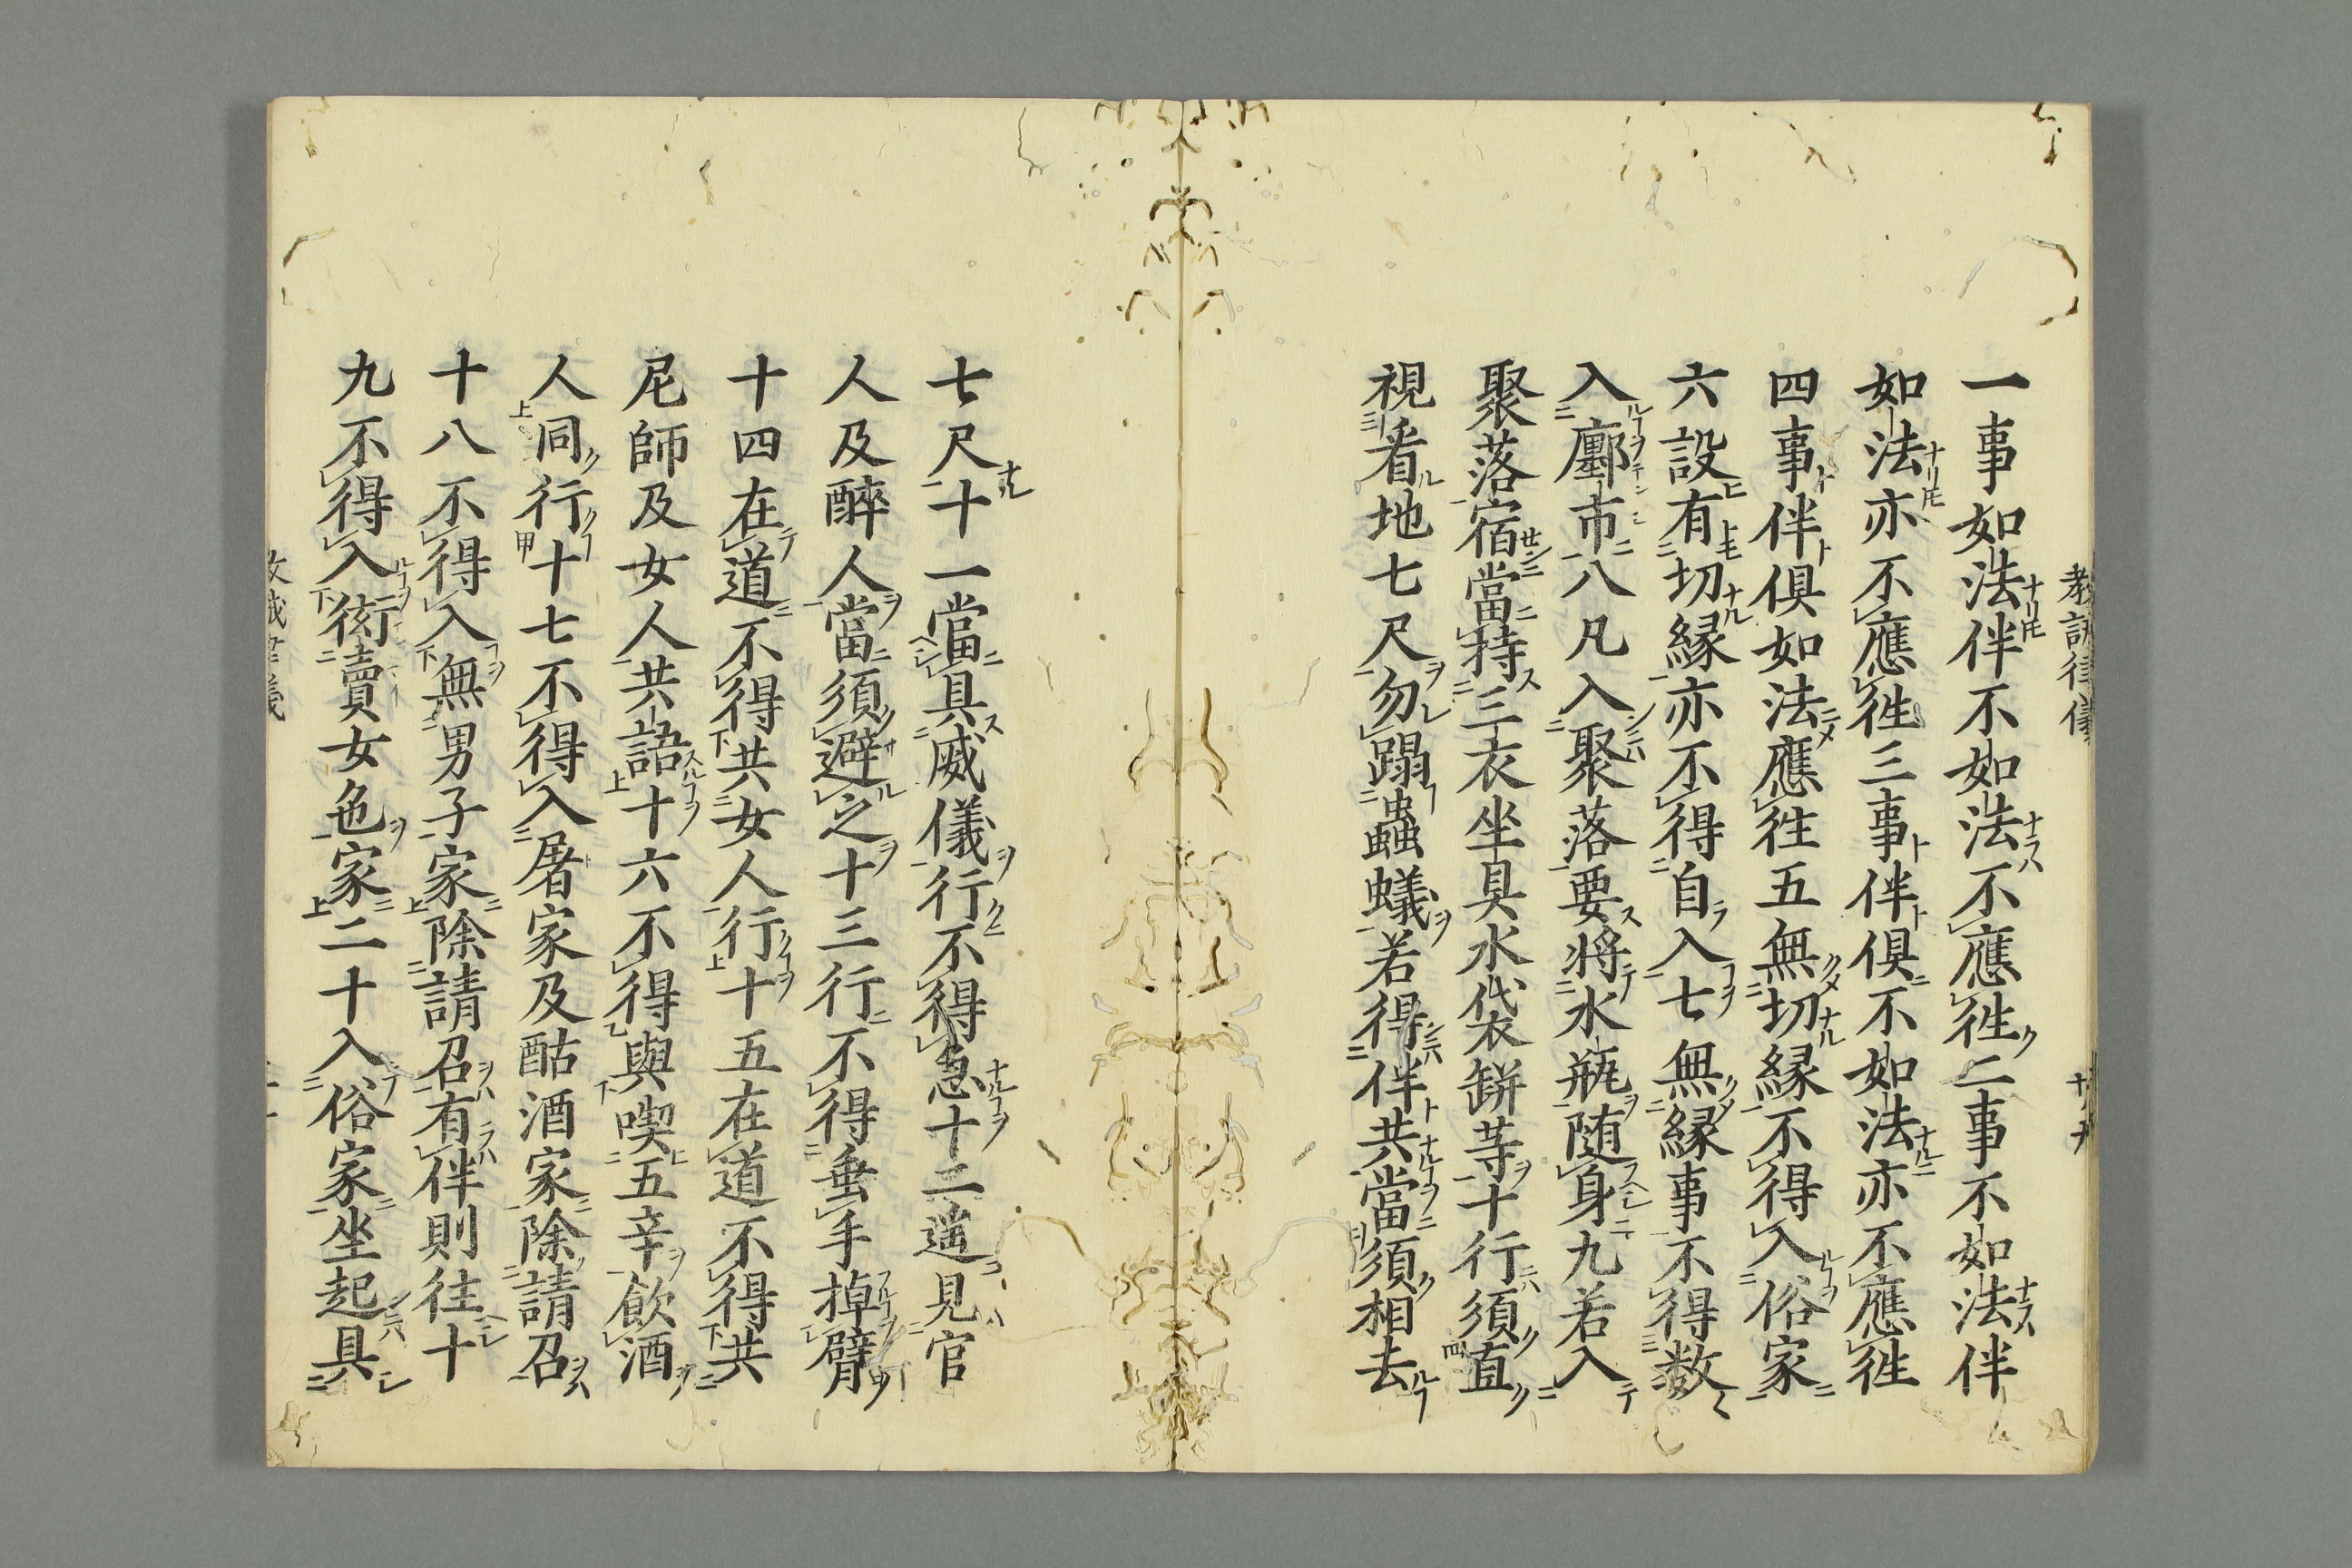 一事如法伴不如法不應徃二事不如法伴
如法亦不應徃三事伴俱不如法亦不應徃
四事伴俱如法應徃五無切縁不得入俗家
六設有切縁亦不得自入七無縁事不得数
入鄽市八凡入聚落要将水瓶随身九若入
聚落宿當持三衣坐具水袋缾䓁十行須直
視看地七尺勿蹋蟲蟻若得伴共當須相去
七尺十一當具威儀行不得急十二遥見官
人及醉人當須避之十三行不得垂手掉臂
十四在道不得共女人行十五在道不得共
尼師及女人共語十六不得與喫五辛飲酒
人同行十七不得入屠家及酤酒家除請召
十八不得入無男子家除請召有伴則往十
九不得入衒賣女色家二十入俗家坐起具